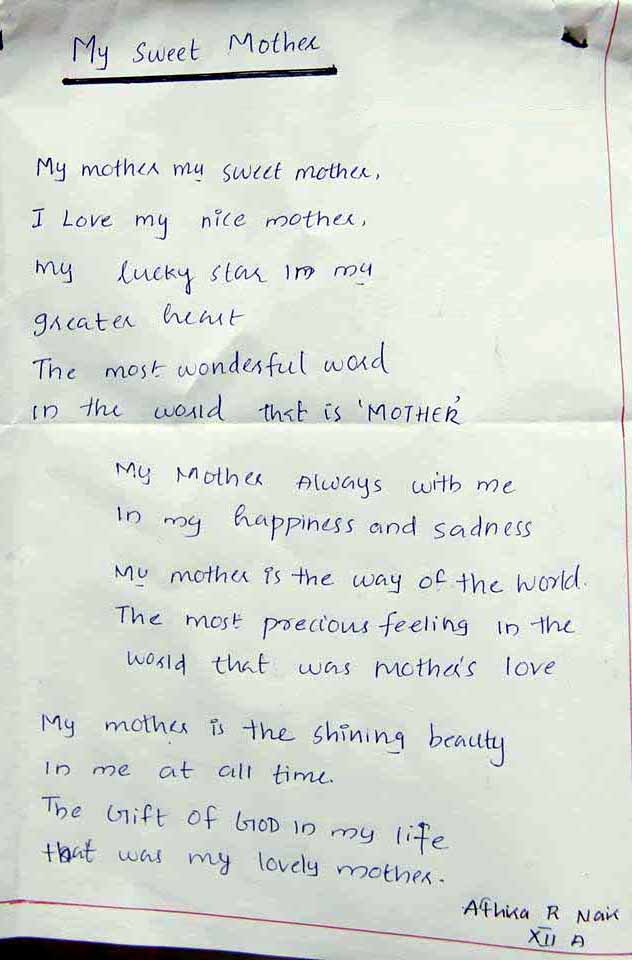 My Sweet Mother
My mother my sweet mother,
I Love my nice mother,
my lucky star in my
greater heart
The most wonderful word
in the world that is 'MOTHER'
My Mother Always with me
In my happiness and sadness
My mother is the way of the world.
The most precious feeling in the
world that was mother's love
My mother is the shining beauty
In me at all time.
The Gift of GOD in my life
that was my lovely mother.
R Nair
XII A